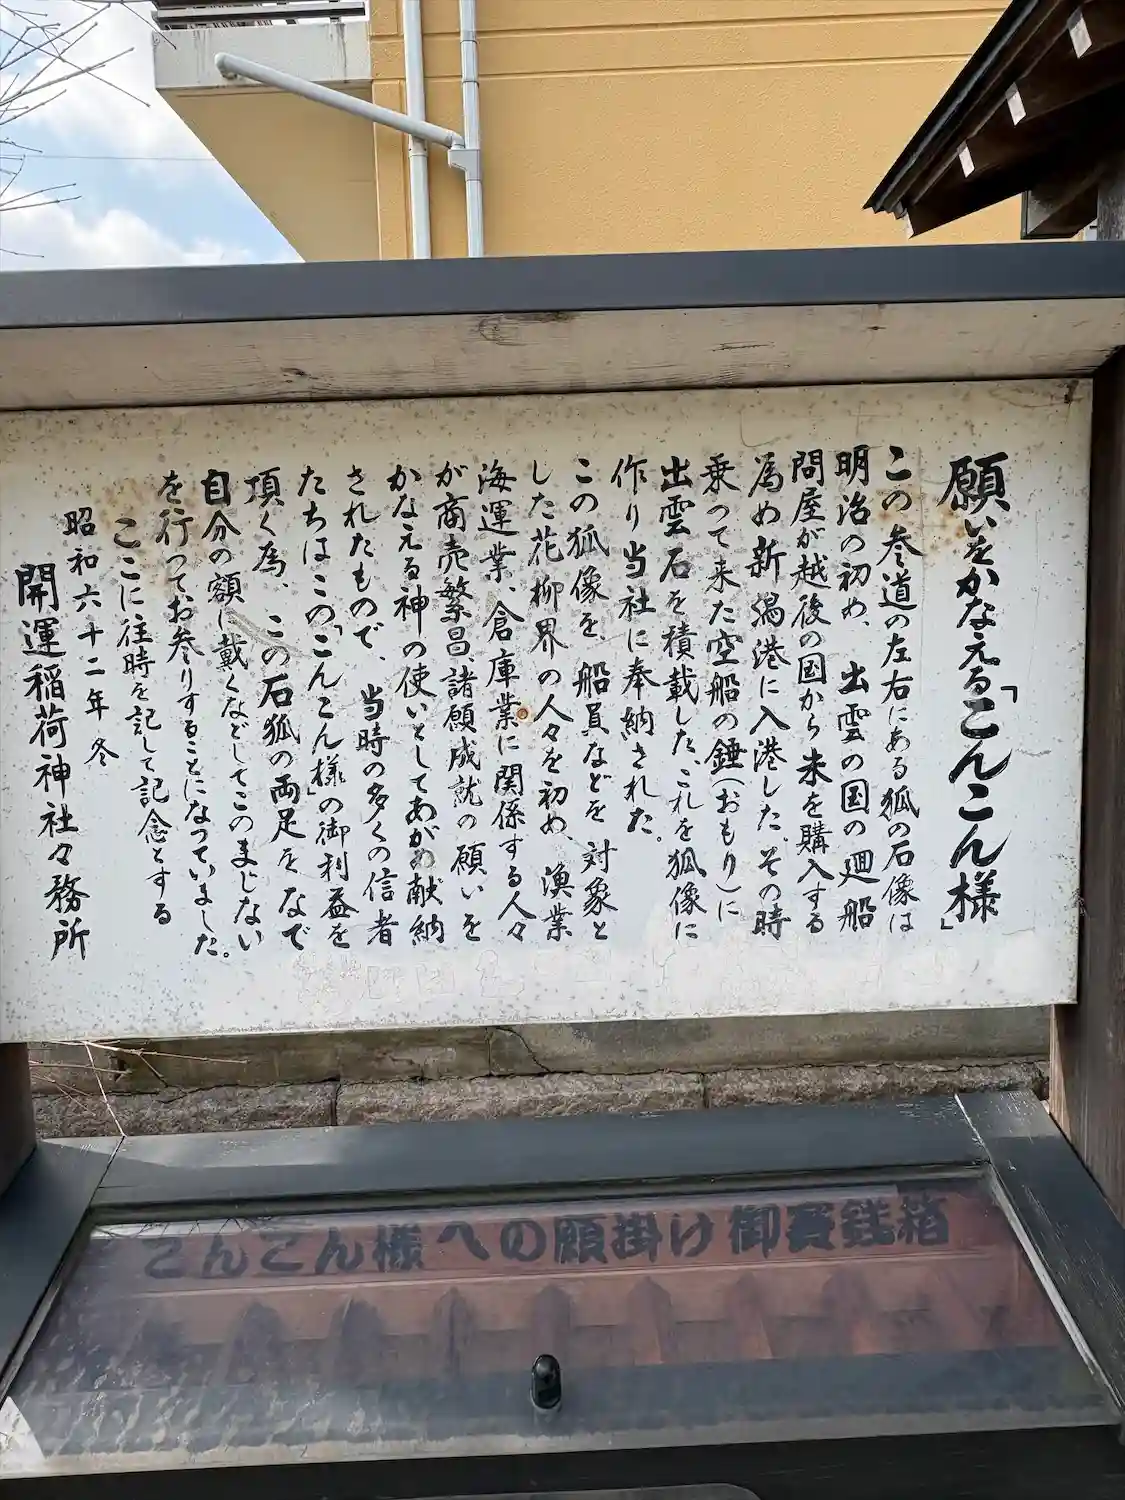 願いをかなえる「こんこん様」
この参道の左右にある狐の石像は
明治の初め、出雲の国の廻船
問屋が越後の国から米を購入する
為め新潟港に入港した。その時
乗って来た空船の錘(おもり)に
出雲石を積載した、これを狐像に
作り当社に奉納された。
この狐像を、船員などを対象と
した花柳界の人々を初め、漁業
海運業、倉庫業に関係する人々
が商売繁昌諸願成就の願いを
かなえる神の使いとしてあがめ献納
されたもので、当時の多くの信者
たちはこの「こんこん様」の御利益を
頂く為、この石狐の両足をなで
自分の額に戴くなどしてこのまじない
を行って、お参りすることになっていました。
ここに往時を記して記念とする
昭和六十二年 冬
開運稲荷神社々務所
こんこん様への願掛け御賽銭箱